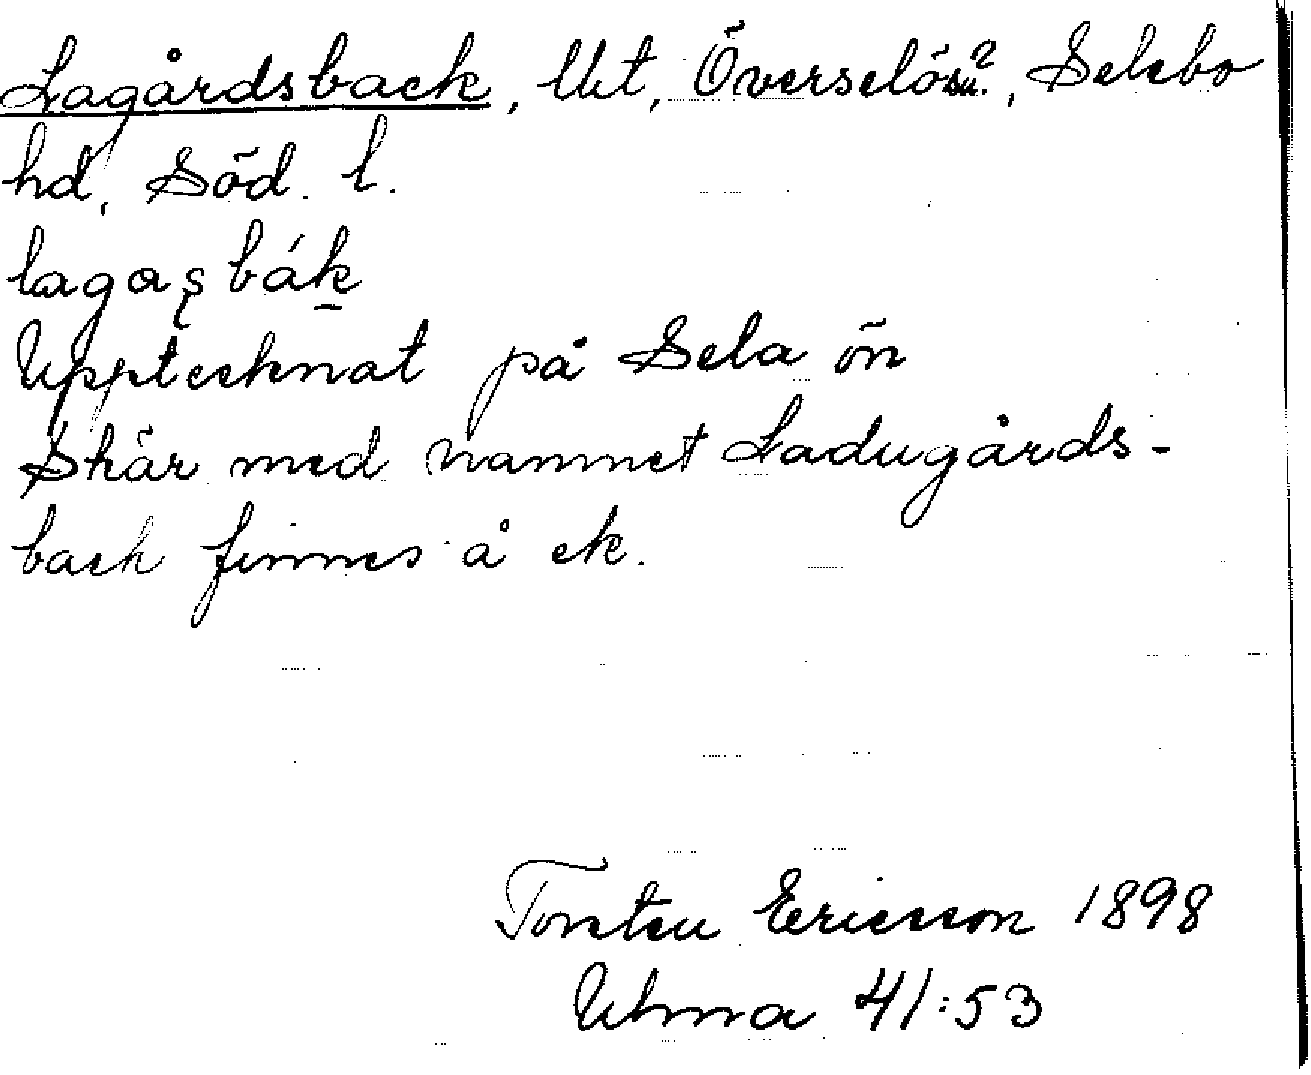 Lagårdsback, Ukt, Överselö sn.?, Selebo
hd, Söd. l.
lagaş bák̲
Upptecknat på Sela ön
Skär med namnet Ladugårds-
back finnes å ek.
Torsten Ericsson 1898
Ulma 41:53